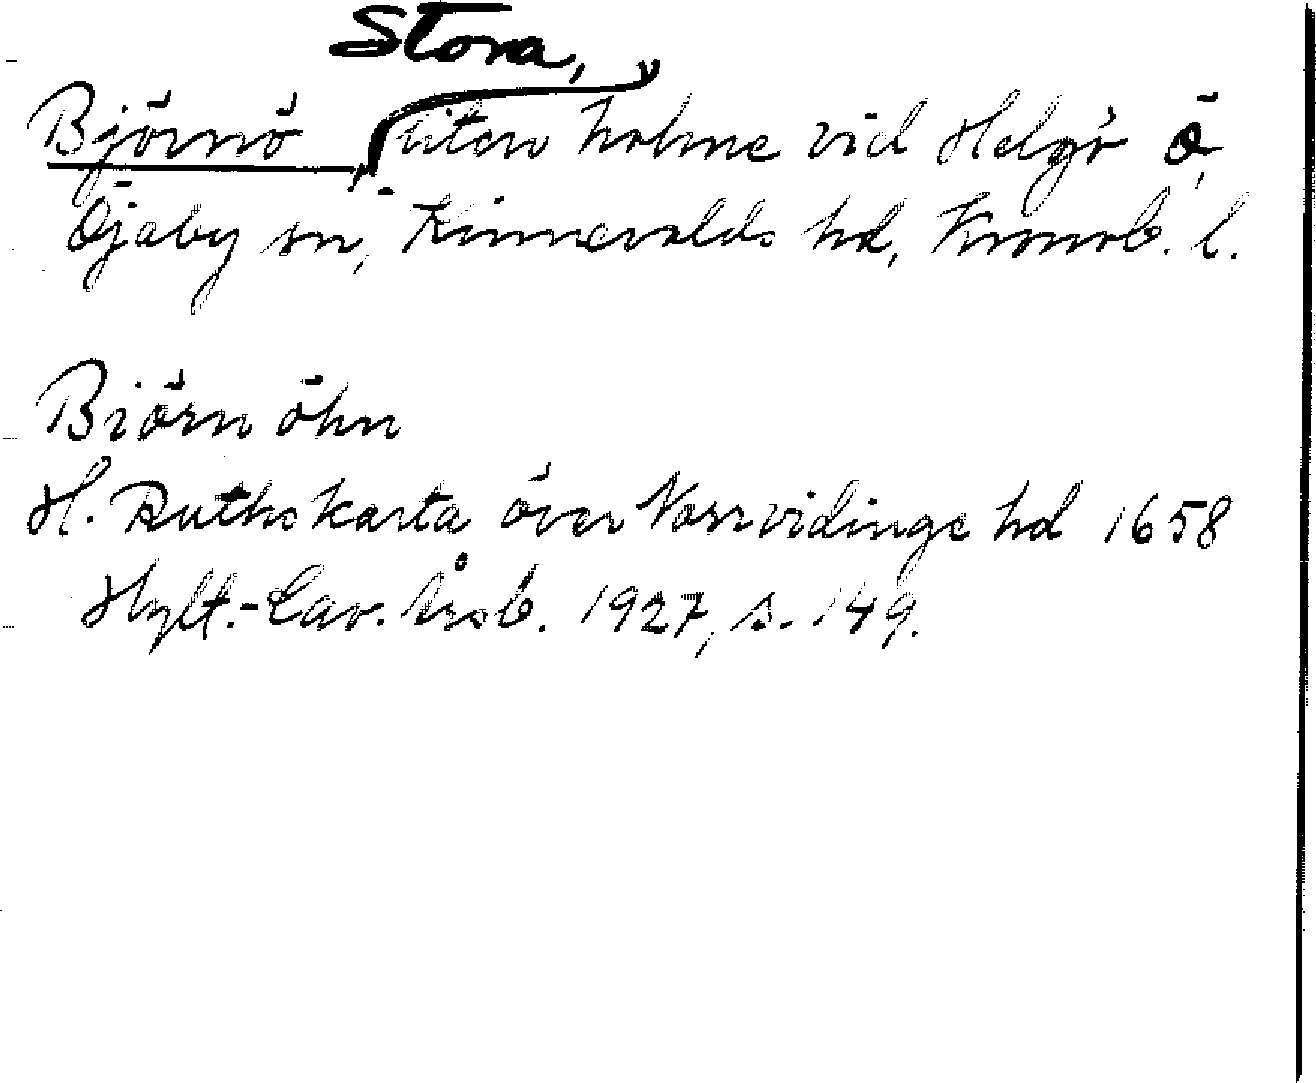 Stora,
Björnö, liten holme vid Helgö ö,
Öjaby sn, Kinnevalds hd, Kronob. l.
Biörn öhn
H. Ruths karta över Norrvidinge hd 1658
Hylt.-Cav. Årsb. 1927, s. 149.